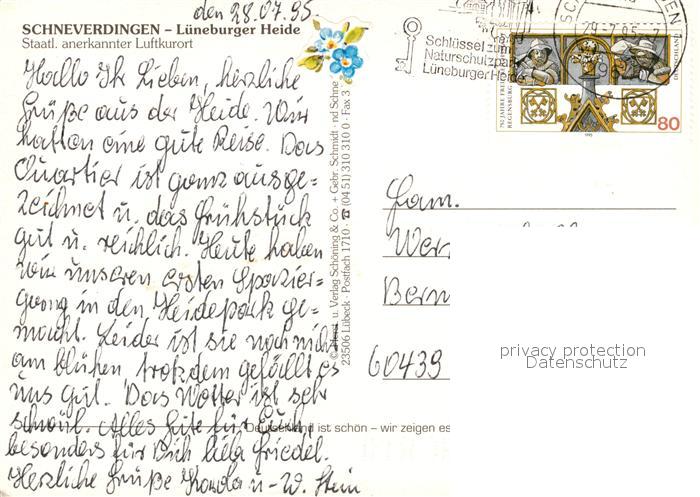 den 28.07.95
SCHNEVERDINGEN – Lüneburger Heide
Staatl. anerkannter Luftkurort
Hallo Ihr Lieben, herzliche
Grüße aus der Heide. Wir
hatten eine gute Reise. Das
Quartier ist ganz ausge=
zeichnet u. das Frühstück
gut u. reichlich. Heute haben
wir unseren ersten Spazier-
gang in den Heidepark ge=
macht. Leider ist sie noch nicht
am blühen, trotzdem gefällt es
uns gut. Das Wetter ist sehr
schwül. Alles Gute für Euch
besonders für Dich liebe Friedel.
Herzliche Grüße u - W. Stein
u. Verlag Schöning & Co. + Gebr. Schmidt
23506 Lübeck · Postfach 1710 · ☎ (04 51) 310 310 0 · Fax 3
Deutschland ist schön – wir zeigen es
Schlüssel zum
Naturschutzpark
Lüneburger Heide
29-7.95-
DEUTSCHLAND
REGENSBURG
80
1995
Fam.
Wer
Bern
60439
privacy protection
Datenschutz